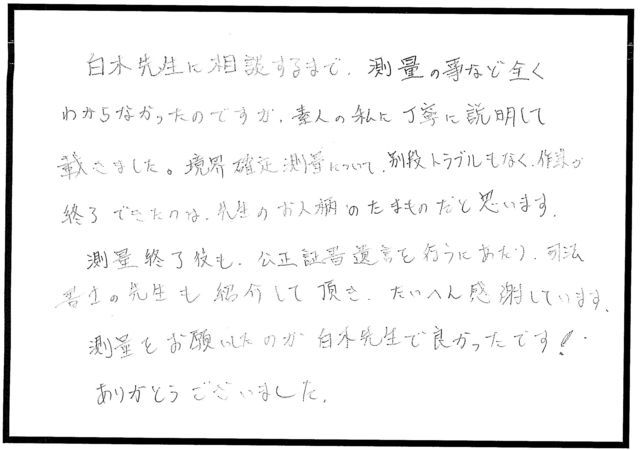 白木先生に相談するまで、測量の事など全く
わからなかったのですが、素人の私に丁寧に説明して
載きました。境界確定測量について、別段トラブルもなく、作業が
終了できたのは、先生のお人柄のたまものだと思います。
測量終了後も、公正証書遺言を行うにあたり、司法
書士の先生も紹介して頂き、たいへん感謝しています。
測量をお願いしたのが白木先生で良かったです!
ありがとうございました。